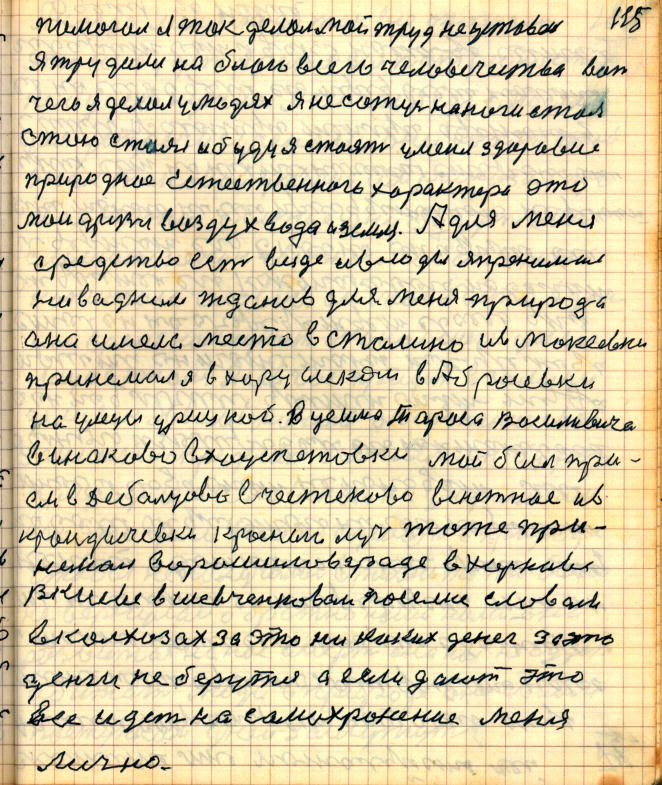 115
помогал я так делал мой труд не уставал
я трудили на благо всего человечества вот
чего я делал у людях я не сотую на ноги стал
стою стоял и буду я стоять умел здоровие
природное Естественного характера это
мои друзи воздух вода и земл. А для меня
средство ест везде и в люди я пренимал
ни в адном жданов для меня природа
ана имела место в сталино и в макеевки
принемал я в хару
на улицы урицкой. В Тараса василивича
мой был при-
ем в дебалцово в
красном луч тоже при-
немал ворошиловграде в харкове
в киеве в шевченковом поселке словом
в колхозах за это ни каких денег за это
ценги не берутся а если дают это
все идет на самохронение меня
лично-